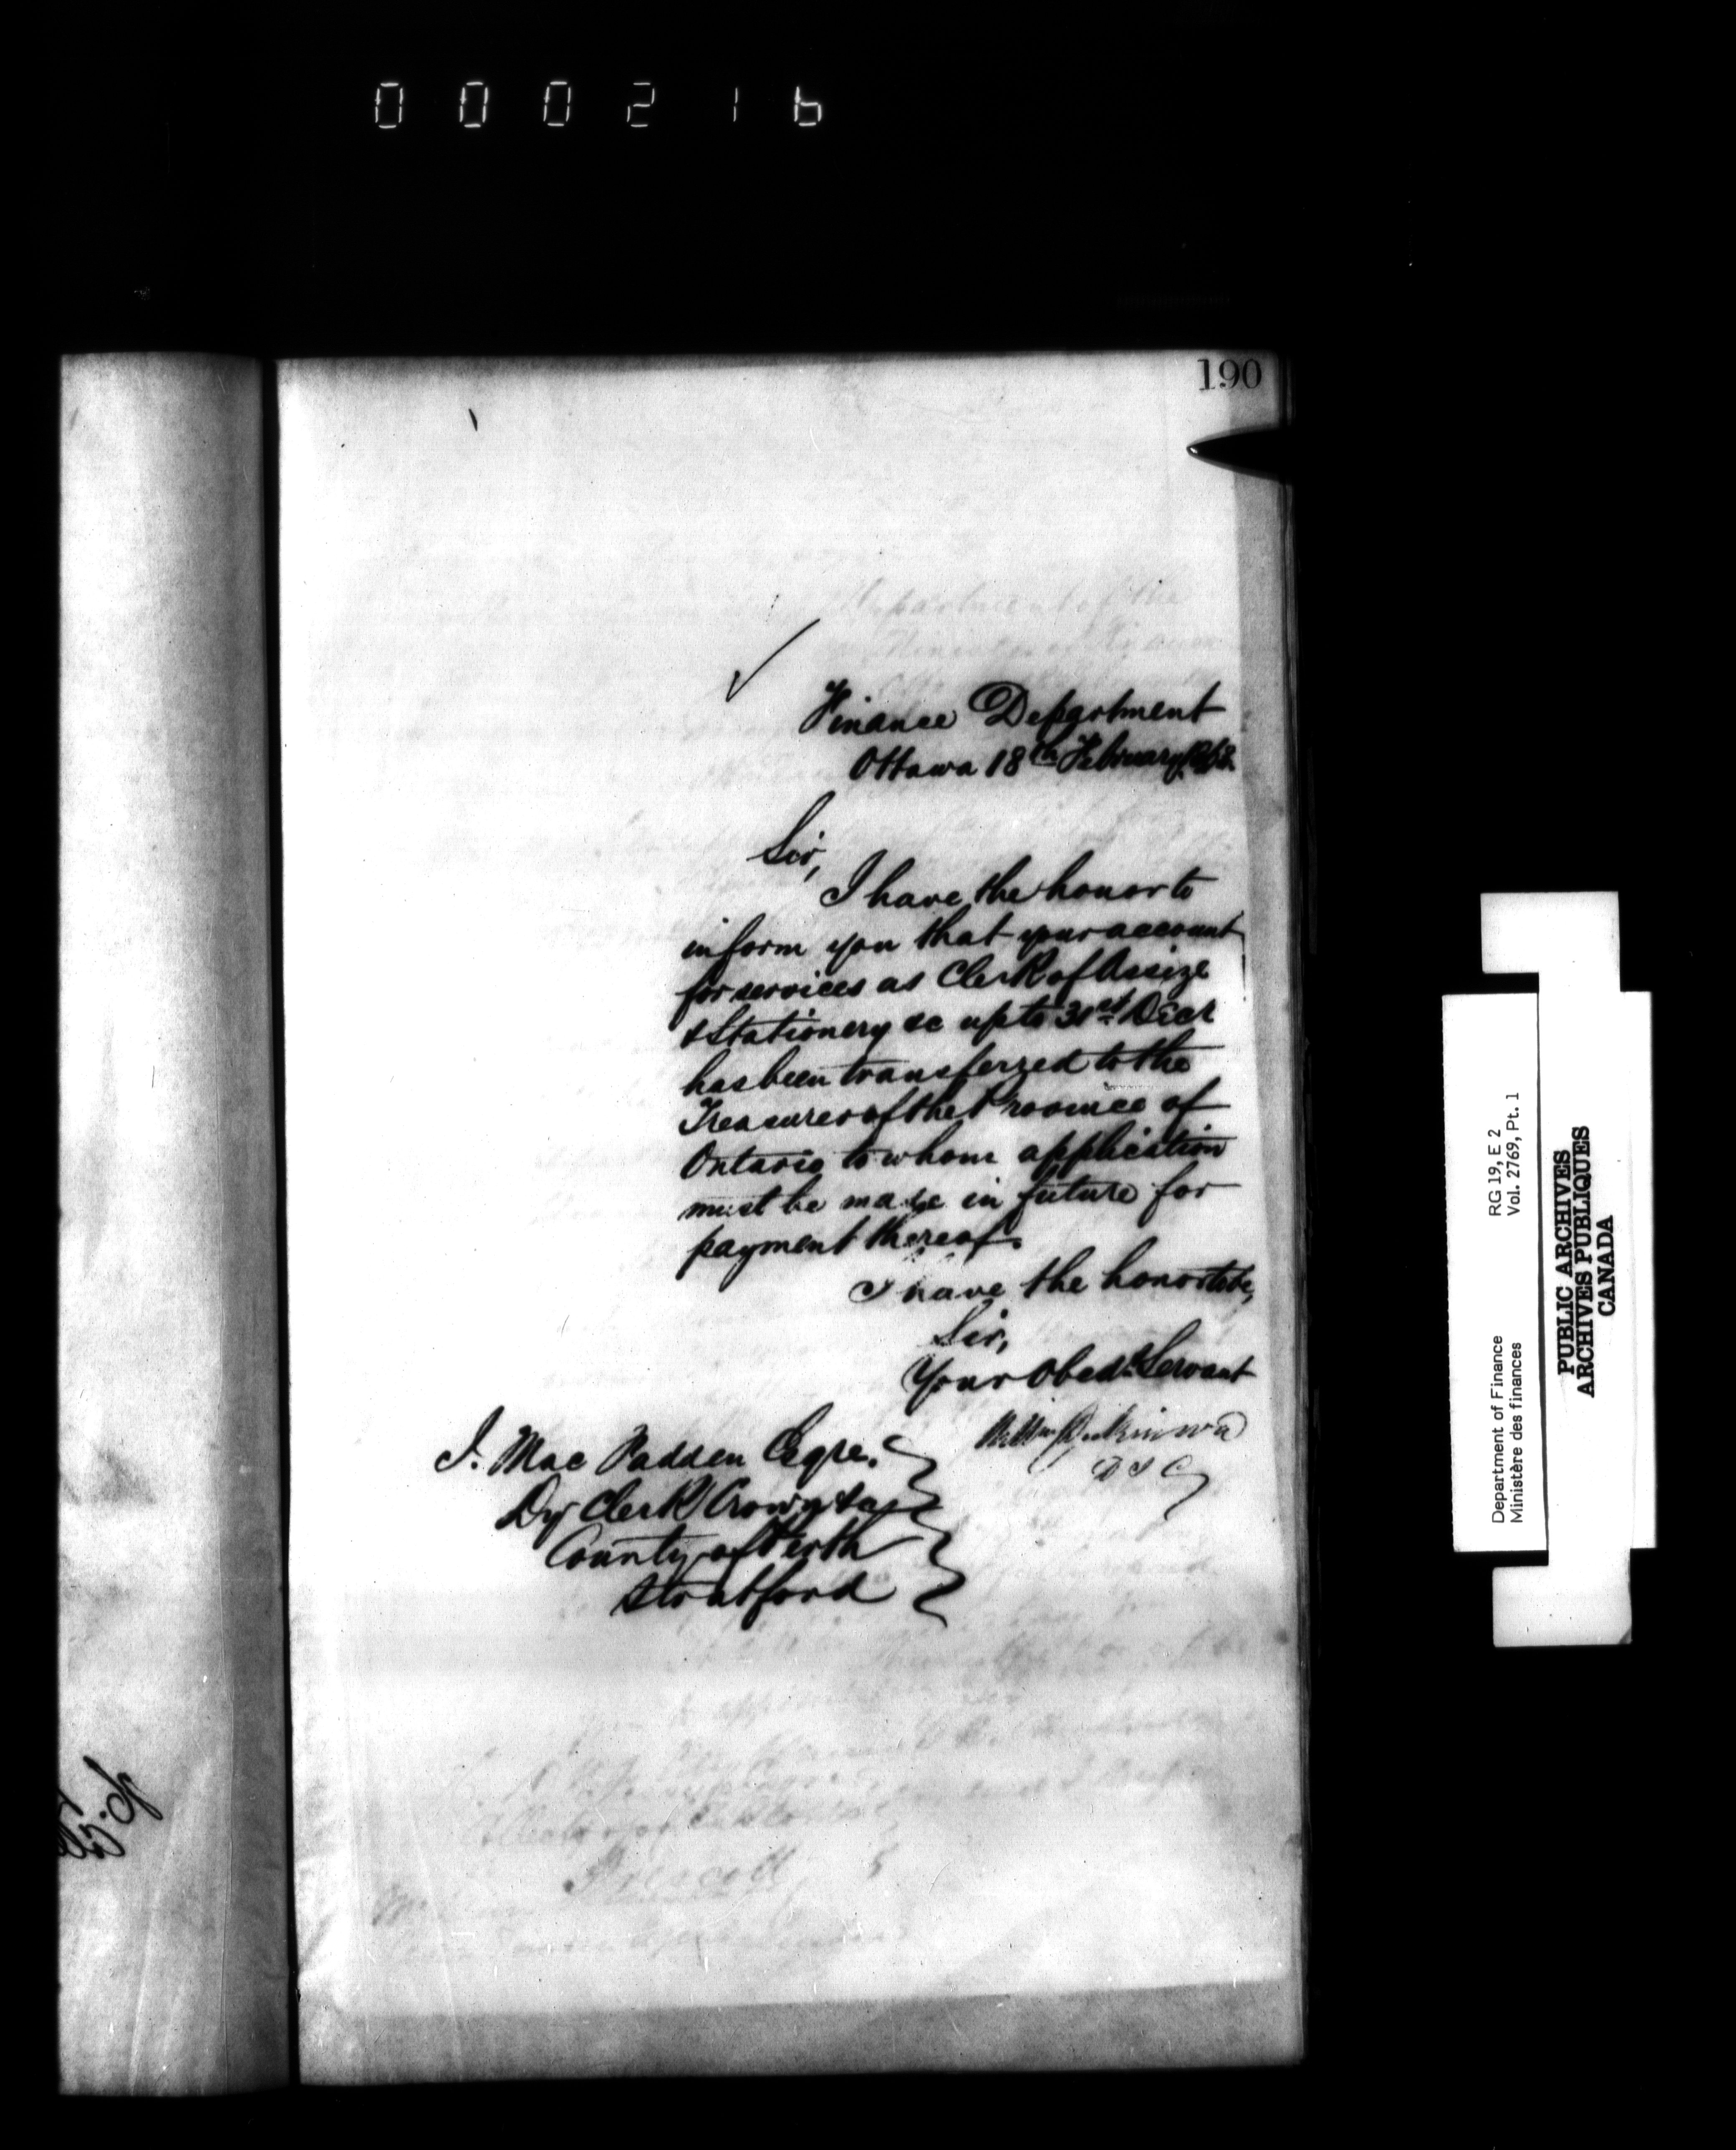 000216
190
Finance Department
Ottawa 18th February 1868
Sir,
I have the honor to
inform you that your account
for services as Clerk of Assize
& Stationery &c up to 31st Decr
has been transferred to the
Treasurer of the Province of
Ontario to whom application
must be made in future for
payment thereof.
I have the honor to be,
Sir,
Your Obedt Servant
Wm Dickinson
D I G
J. Mac Fadden Esqre.
Dy Clerk Crown &a
County of Perth
Stratford
Department of Finance RG 19, E 2
Ministère des finances Vol. 2769, Pt. 1
PUBLIC ARCHIVES
ARCHIVES PUBLIQUES
CANADA